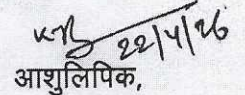 22/4/26
आशुलिपिक,